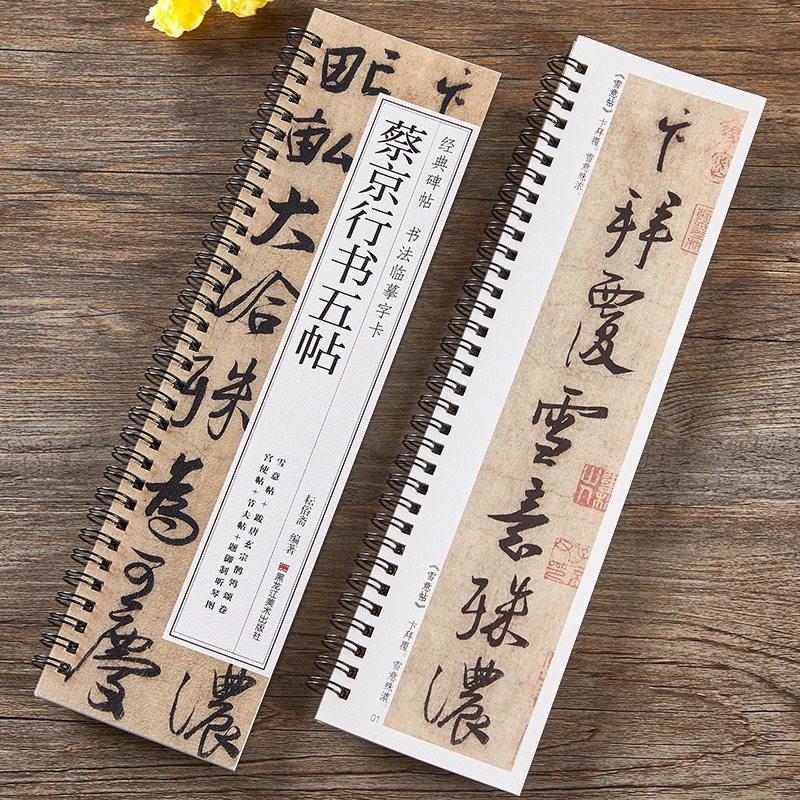 卞
濃
大洽殊為可慶
经典碑帖 书法临摹字卡
蔡京行书五帖
雪意帖+跋唐玄宗鹡鸰颂卷
宫使帖+节夫帖+题御制听琴图
耘俗斋 编著
黑龙江美术出版社
《雪意帖》 卞拜覆。雪意殊浓。
卞拜覆雪意殊濃
《雪意帖》 卞拜覆。雪意殊濃。
01